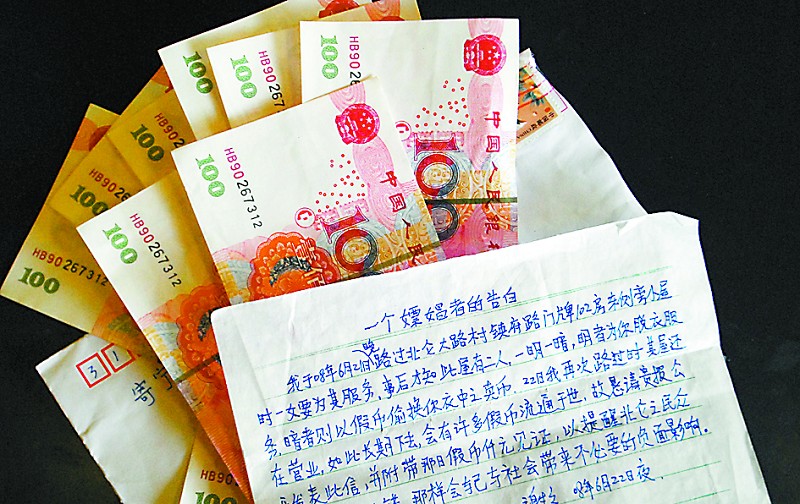 100
HB90267
100
HB90267
100
HB90267
100
HB90
100
100
HB90267312
100
HB90267312
中国人民银
100
HB90267312
中国人民
100
31
一个嫖娼者的告白
我于08年6月2日晚路过北仑大路村镇有路门牌102房东侧旁小屋
时一女要为某服务,事后才知此屋有二人,一明一暗,明者为你脱衣服
务,暗者则以假币偷换你衣中之真币.22日我再次路过时其屋还
在营业,如此长期下去,会有许多假币流通于世,故恳请贵报公
发表此信,并附带那日假币什元见证,以提醒北仑之民众
那样会给与社会带来不必要的负面影响.
08年6月22日夜.